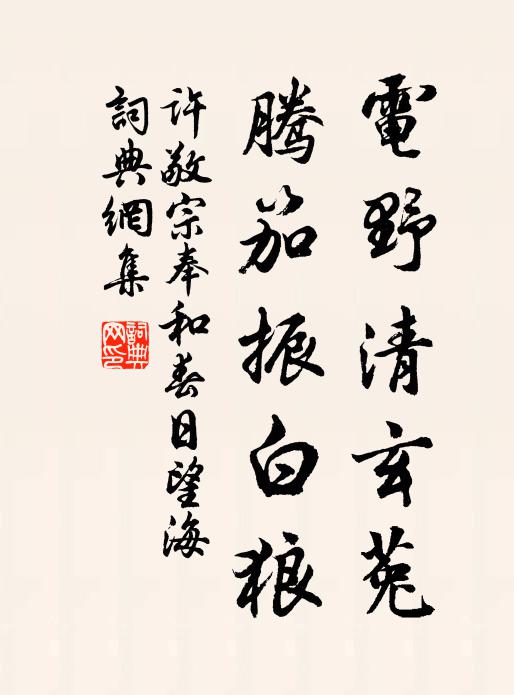 電野清玄菟
騰笳振白狼
許敬宗奉和春日望海
詞典網集
詞典網印